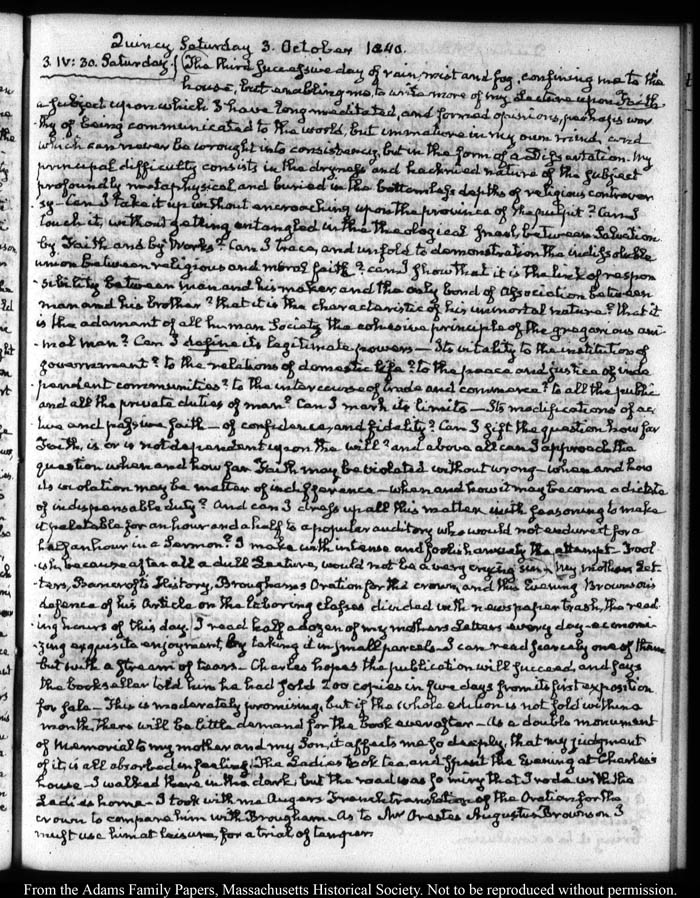 Quincy Saturday 3. October 1840.
3. IV: 30. Saturday. The third successive day of rain, mist and fog, confining me to the
house, but enabling me to write more of my Lecture upon Faith
a subject upon which I have long meditated, and formed opinions, perhaps wor
thy of being communicated to the world, but immature in my own mind, and
which can never be wrought into consistency, but in the form of a Dissertation. My
principal difficulty consists in the dryness and hackneied nature of the subject
profoundly metaphysical and buried in the bottomless depths of religious controver
sy— Can I take it up without encroaching upon the province of the pulpit? Can I
touch it, without getting entangled in the theological between Salvation
by Faith and by Works? Can I trace, and unfold to demonstration the indissoluble
union between religious and moral faith? can I show that it is the link of respon
sibility between man and his maker, and the only bond of association between
man and his brother? that it is the characteristic of his immortal nature? that it
is the adamant of all human Society the cohesive principle of the gregarious ani
mal man? Can I define its legitimate powers— Its vitality to the institution of
government? to the relations of domestic life? to the peace and justice of inde
pendent communities? to the intercourse of trade and commerce? to all the public
and all the private duties of man? Can I mark its limits— Its modifications of ac
tive and passive faith— of confidence, and fidelity? Can I sift the question how far
Faith, is or is not dependent upon the will? and above all can I approach the
question when and how far Faith may be violated without wrong— when and how
its violation may be matter of indifference— when and how it may become a dictate
of indispensable duty? And can I dress up all this matter with seasoning to make
it palatable for an hour and a half to a popular auditory who would not endure it for a
half an hour in a Sermon? I make with intense and foolish anxiety the attempt— Fool
ish, because after all a dull Lecture, would not be a very crying sin— My mothers Let
ters, Bancroft's History, Brougham's Oration for the crown, and this Evening Brownson's
defence of his Article on the laboring classes divided with newspaper trash, the read
ing hours of this day. I read half a dozen of my mothers Letters every day— economi
zing exquisite enjoyment, by taking it in small parcels— I can read scarcely one of them
but with a stream of tears— Charles hopes the publication will succeed, and says
the bookseller told him he had sold 200 copies in five days from its first exposition
for sale— This is moderately promising, but if the whole edition is not sold within a
month, there will be little demand for the book ever after— As a double monument
of Memorial to my mother and my Son, it affects me so deeply, that my judgment
of it, is all absorbed in feeling. The Ladies took tea, and spent the Evening at Charles's
house— I walked there in the dark but the road was so miry that I rode with the
Ladies home— I took with me Augers French translation of the Oration for the
crown to compare him with Brougham— As to Mr Orestes Augustus Brownson I
must use him at leisure, for a trial of temper.
From the Adams Family Papers, Massachusetts Historical Society. Not to be reproduced without permission.